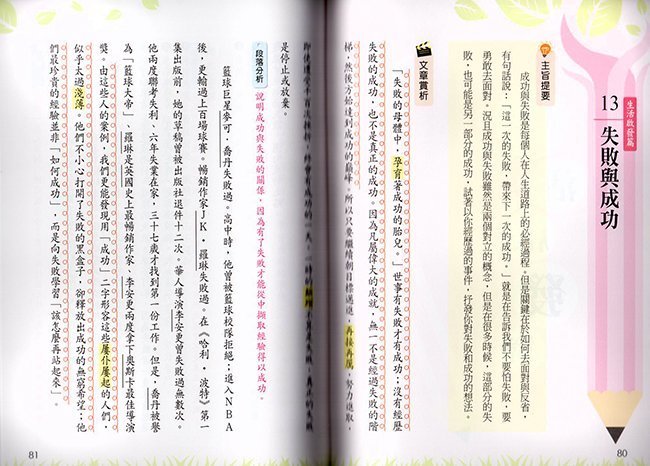 生活啟發篇
13 失敗與成功
主旨提要
成功與失敗是每個人在人生道路上的必經過程。但是關鍵在於如何去面對與反省，
有句話說：「這一次的失敗，帶來下一次的成功。」就是在告訴我們不要怕失敗，要
勇敢去面對。況且成功與失敗雖然是兩個對立的概念，但是在很多時候，這部分的失
敗，也可能是另一部分的成功，試著以你經歷過的事件，抒發你對失敗和成功的想法。
文章賞析
「失敗的母體中，孕育著成功的胎兒。」世事有失敗才有成功；沒有經歷
失敗的成功，也不是真正的成功。因為凡屬偉大的成就，無一不是經過失敗的階
梯，然後方始達到成功的巔峰。所以只要繼續朝目標邁進，再接再厲，努力進取，
是停止或放棄。
段落分析
說明成功與失敗的關係，因為有了失敗才能從中擷取經驗得以成功。
籃球巨星麥可．喬丹失敗過。高中時，他曾被籃球校隊拒絕；進入NBA
後，更輸過上百場球賽。暢銷作家JK．羅琳失敗過。在《哈利．波特》第一
集出版前，她的草稿曾被出版社退件十二次。華人導演李安更曾失敗過無數次。
他兩度聯考失利，六年失業在家，三十七歲才找到第一份工作。但是，喬丹被譽
為「籃球大帝」，羅琳是英國史上最暢銷作家、李安更兩度拿下奧斯卡最佳導演
獎。由這些人的案例，我們更能發現用「成功」二字形容這些屢仆屢起的人們，
似乎太過淺薄。他們不小心打開了失敗的黑盒子，卻釋放出成功的無窮希望；他
們最珍貴的經驗並非「如何成功」，而是向失敗學習「該怎麼再站起來」。
80
81